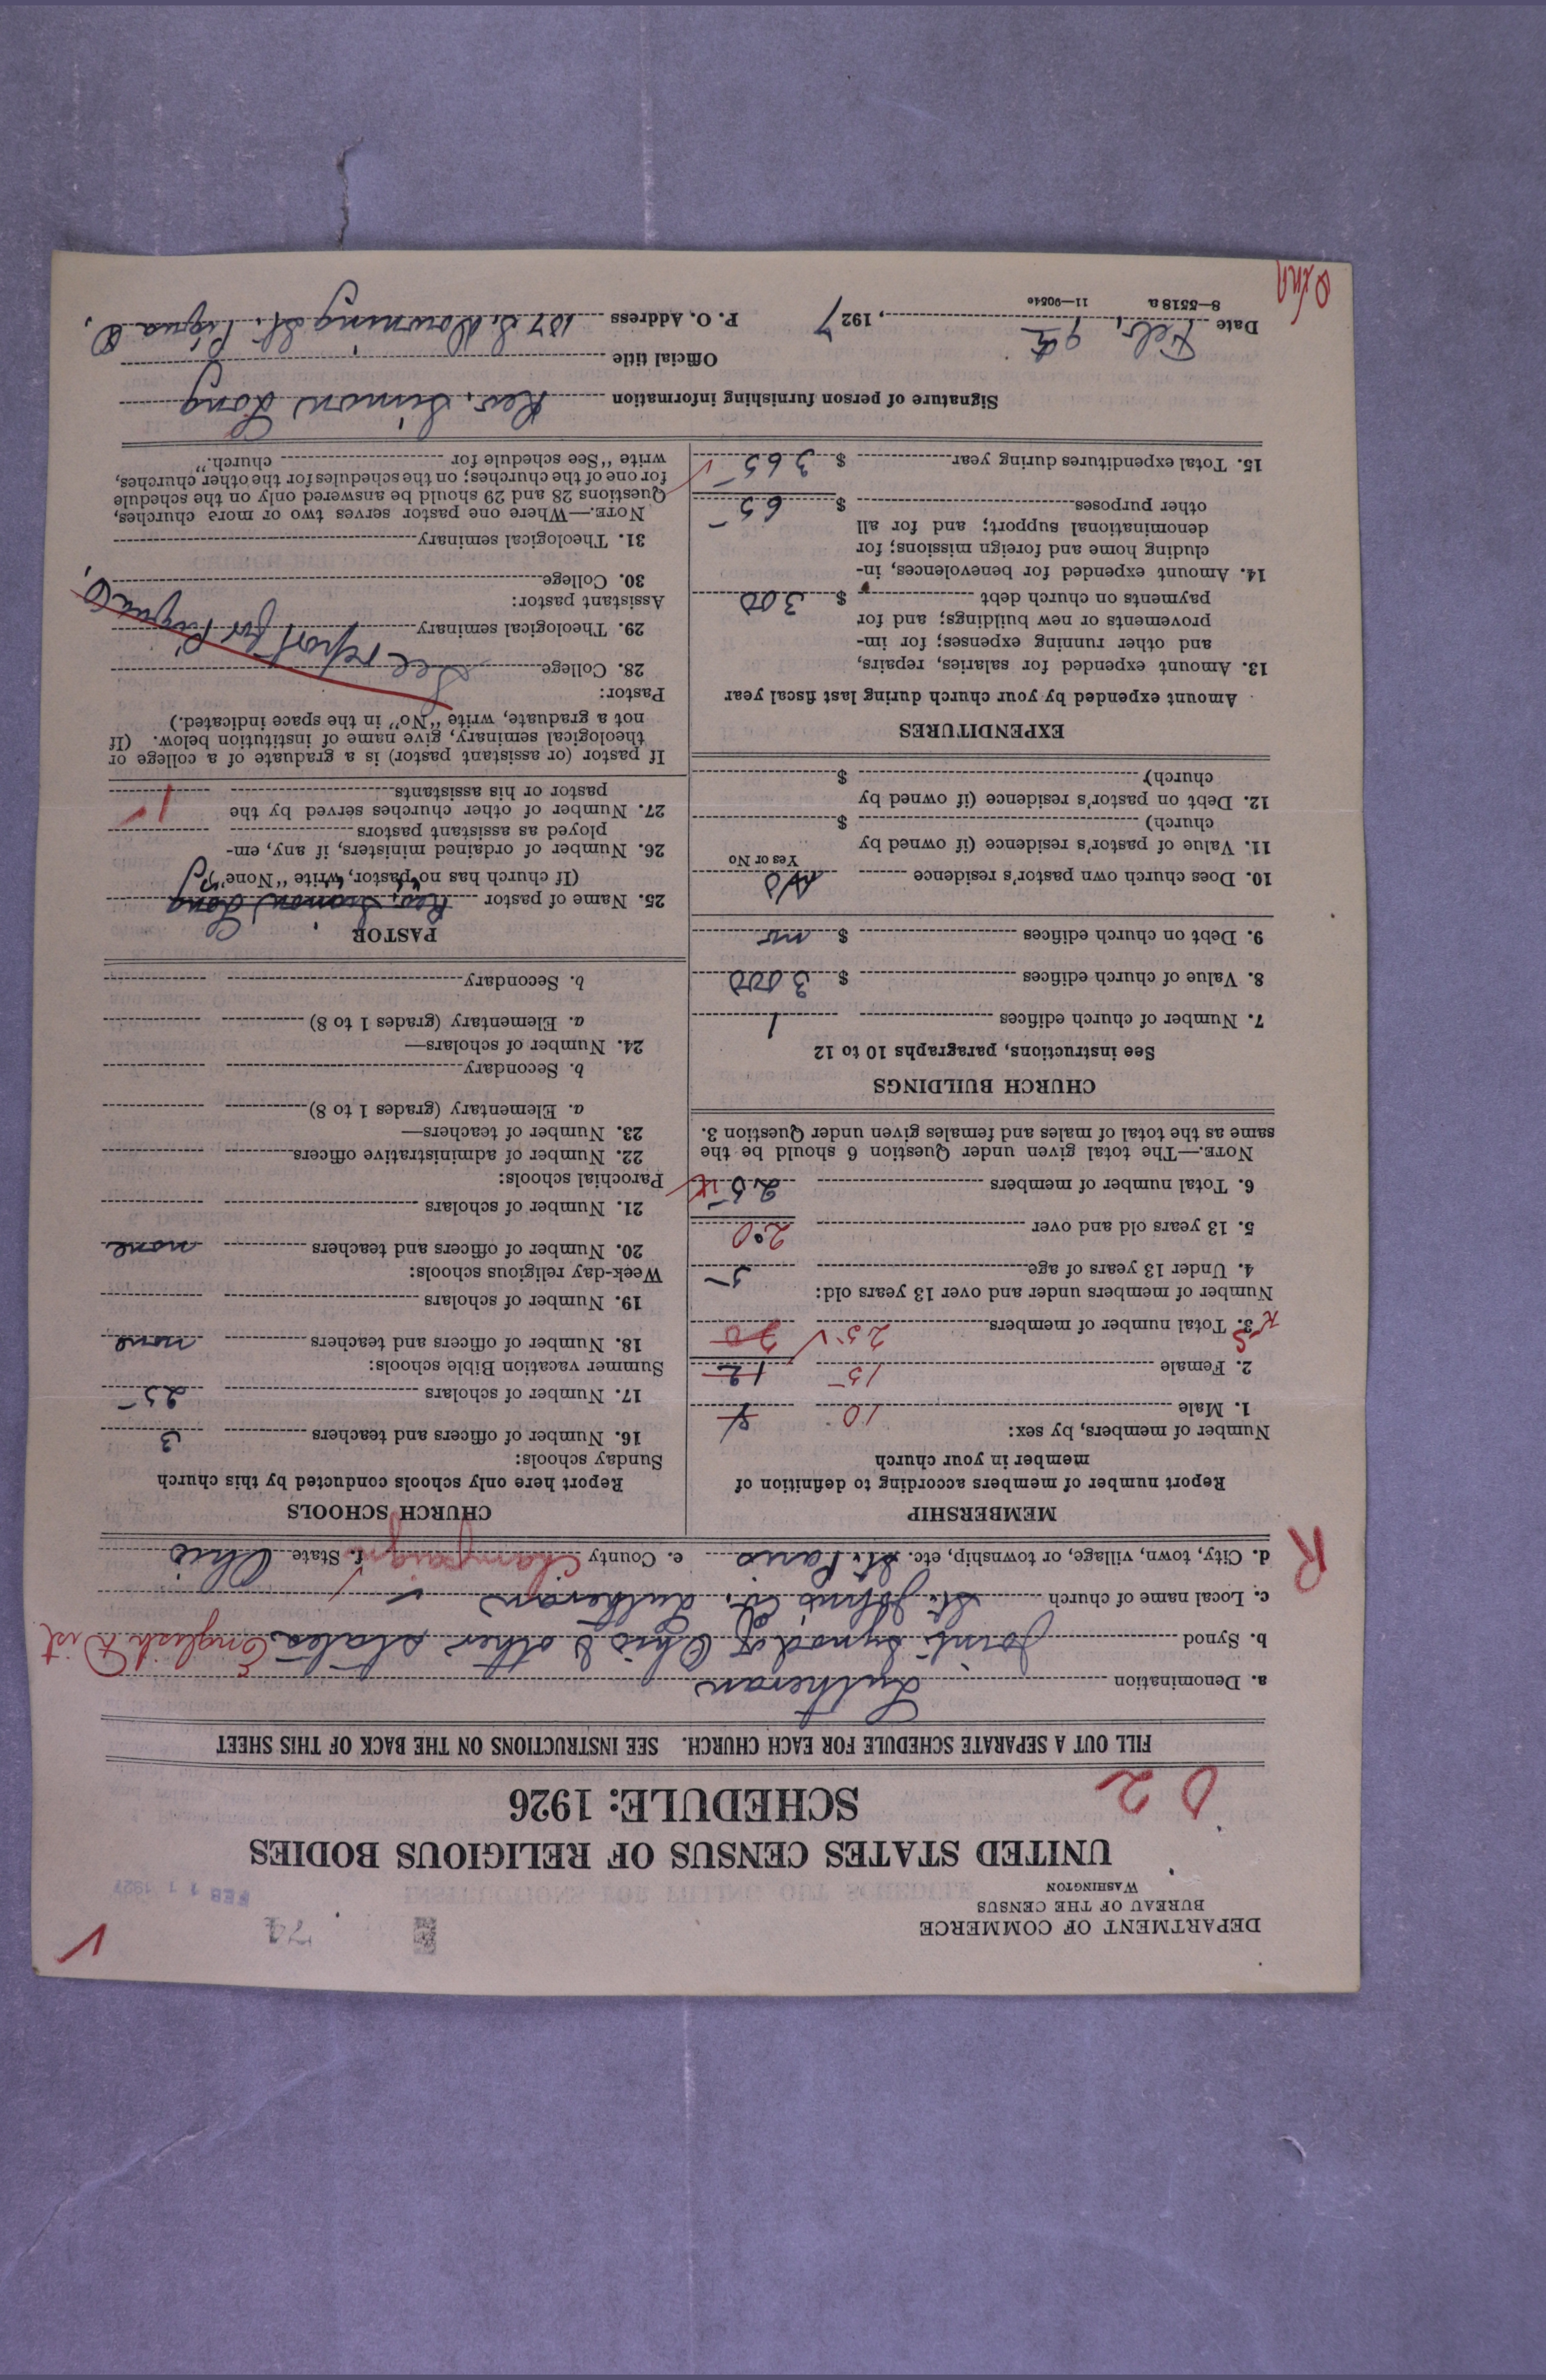 DEPARTMENT OF COMMERCE
BUREAU OF THE CENSUS
WASHINGTON
74
FEB 11 1927
UNITED STATES CENSUS OF RELIGIOUS BODIES
SCHEDULE: 1926
02
FILL OUT A SEPARATE SCHEDULE FOR EACH CHURCH. SEE INSTRUCTIONS ON THE BACK OF THIS SHEET
a. Denomination Lutheran
b. Synod Joint Synod of Ohio & other states English Dist
c. Local name of church St. John's Ev. Lutheran
d. City, town, village, or township, etc. St. Paris e. County Champaign f. State Ohio
R
MEMBERSHIP
Report number of members according to definition of
member in your church
Number of members, by sex:
1. Male 10 8
2. Female 15 12
3. Total number of members 25 20
Number of members under and over 13 years old:
4. Under 13 years of age 5
5. 13 years old and over 20
6. Total number of members 25
NOTE.—The total given under Question 6 should be the
same as the total of males and females given under Question 3.
CHURCH BUILDINGS
See instructions, paragraphs 10 to 12
7. Number of church edifices 1
8. Value of church edifices $ 3000
9. Debt on church edifices $
10. Does church own pastor's residence No
Yes or No
11. Value of pastor's residence (if owned by
church) $
12. Debt on pastor's residence (if owned by
church) $
EXPENDITURES
Amount expended by your church during last fiscal year
13. Amount expended for salaries, repairs,
and other running expenses; for im-
provements or new buildings; and for
payments on church debt $ 300
14. Amount expended for benevolences, in-
cluding home and foreign missions; for
denominational support; and for all
other purposes $ 65
15. Total expenditures during year $ 365
CHURCH SCHOOLS
Report here only schools conducted by this church
Sunday schools:
16. Number of officers and teachers 3
17. Number of scholars 25
Summer vacation Bible schools:
18. Number of officers and teachers none
19. Number of scholars
Week-day religious schools:
20. Number of officers and teachers none
21. Number of scholars
Parochial schools:
22. Number of administrative officers
23. Number of teachers—
a. Elementary (grades 1 to 8)
b. Secondary
24. Number of scholars—
a. Elementary (grades 1 to 8)
b. Secondary
PASTOR
25. Name of pastor Rev. Simon Long
(If church has no pastor, write "None")
26. Number of ordained ministers, if any, em-
ployed as assistant pastors
27. Number of other churches served by the
pastor or his assistants 1
If pastor (or assistant pastor) is a graduate of a college or
theological seminary, give name of institution below. (If
not a graduate, write "No" in the space indicated.)
Pastor:
28. College See report
29. Theological seminary for Piqua O.
Assistant pastor:
30. College
31. Theological seminary
NOTE.—Where one pastor serves two or more churches,
Questions 28 and 29 should be answered only on the schedule
for one of the churches; on the schedules for the other churches,
write "See schedule for church."
Signature of person furnishing information Rev. Simon Long
Official title
Date Feb. 9th, 1927 P. O. Address 107 S. Downing St. Piqua O.
8—5518a 11—9054c